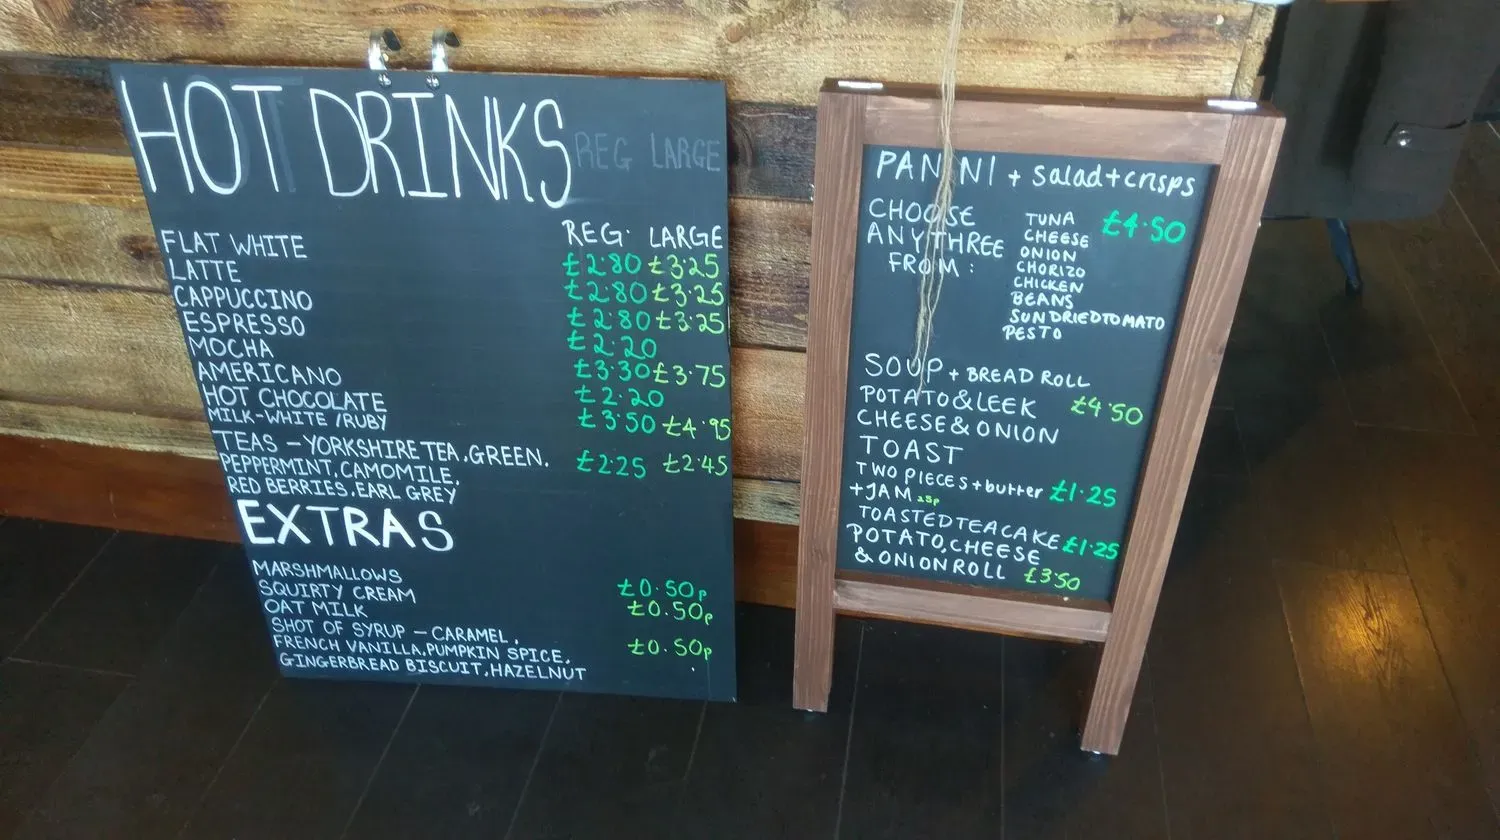 HOT DRINKS REG LARGE
REG. LARGE
FLAT WHITE £2.80 £3.25
LATTE £2.80 £3.25
CAPPUCCINO £2.80 £3.25
ESPRESSO £2.20
MOCHA £3.30 £3.75
AMERICANO £2.20
HOT CHOCOLATE £3.50 £4.95
MILK-WHITE/RUBY
TEAS - YORKSHIRE TEA, GREEN. £2.25 £2.45
PEPPERMINT, CAMOMILE,
RED BERRIES, EARL GREY
EXTRAS
MARSHMALLOWS
SQUIRTY CREAM £0.50p
OAT MILK £0.50p
SHOT OF SYRUP - CARAMEL,
FRENCH VANILLA, PUMPKIN SPICE, £0.50p
GINGERBREAD BISCUIT, HAZELNUT
PANINI + salad + crisps
CHOOSE
ANY THREE
FROM:
£4.50
TUNA
CHEESE
ONION
CHORIZO
CHICKEN
BEANS
SUNDRIED TOMATO
PESTO
SOUP + BREAD ROLL
POTATO & LEEK £4.50
CHEESE & ONION
TOAST
TWO PIECES + butter £1.25
+ JAM 25p
TOASTED TEACAKE £1.25
POTATO, CHEESE
& ONION ROLL £3.50